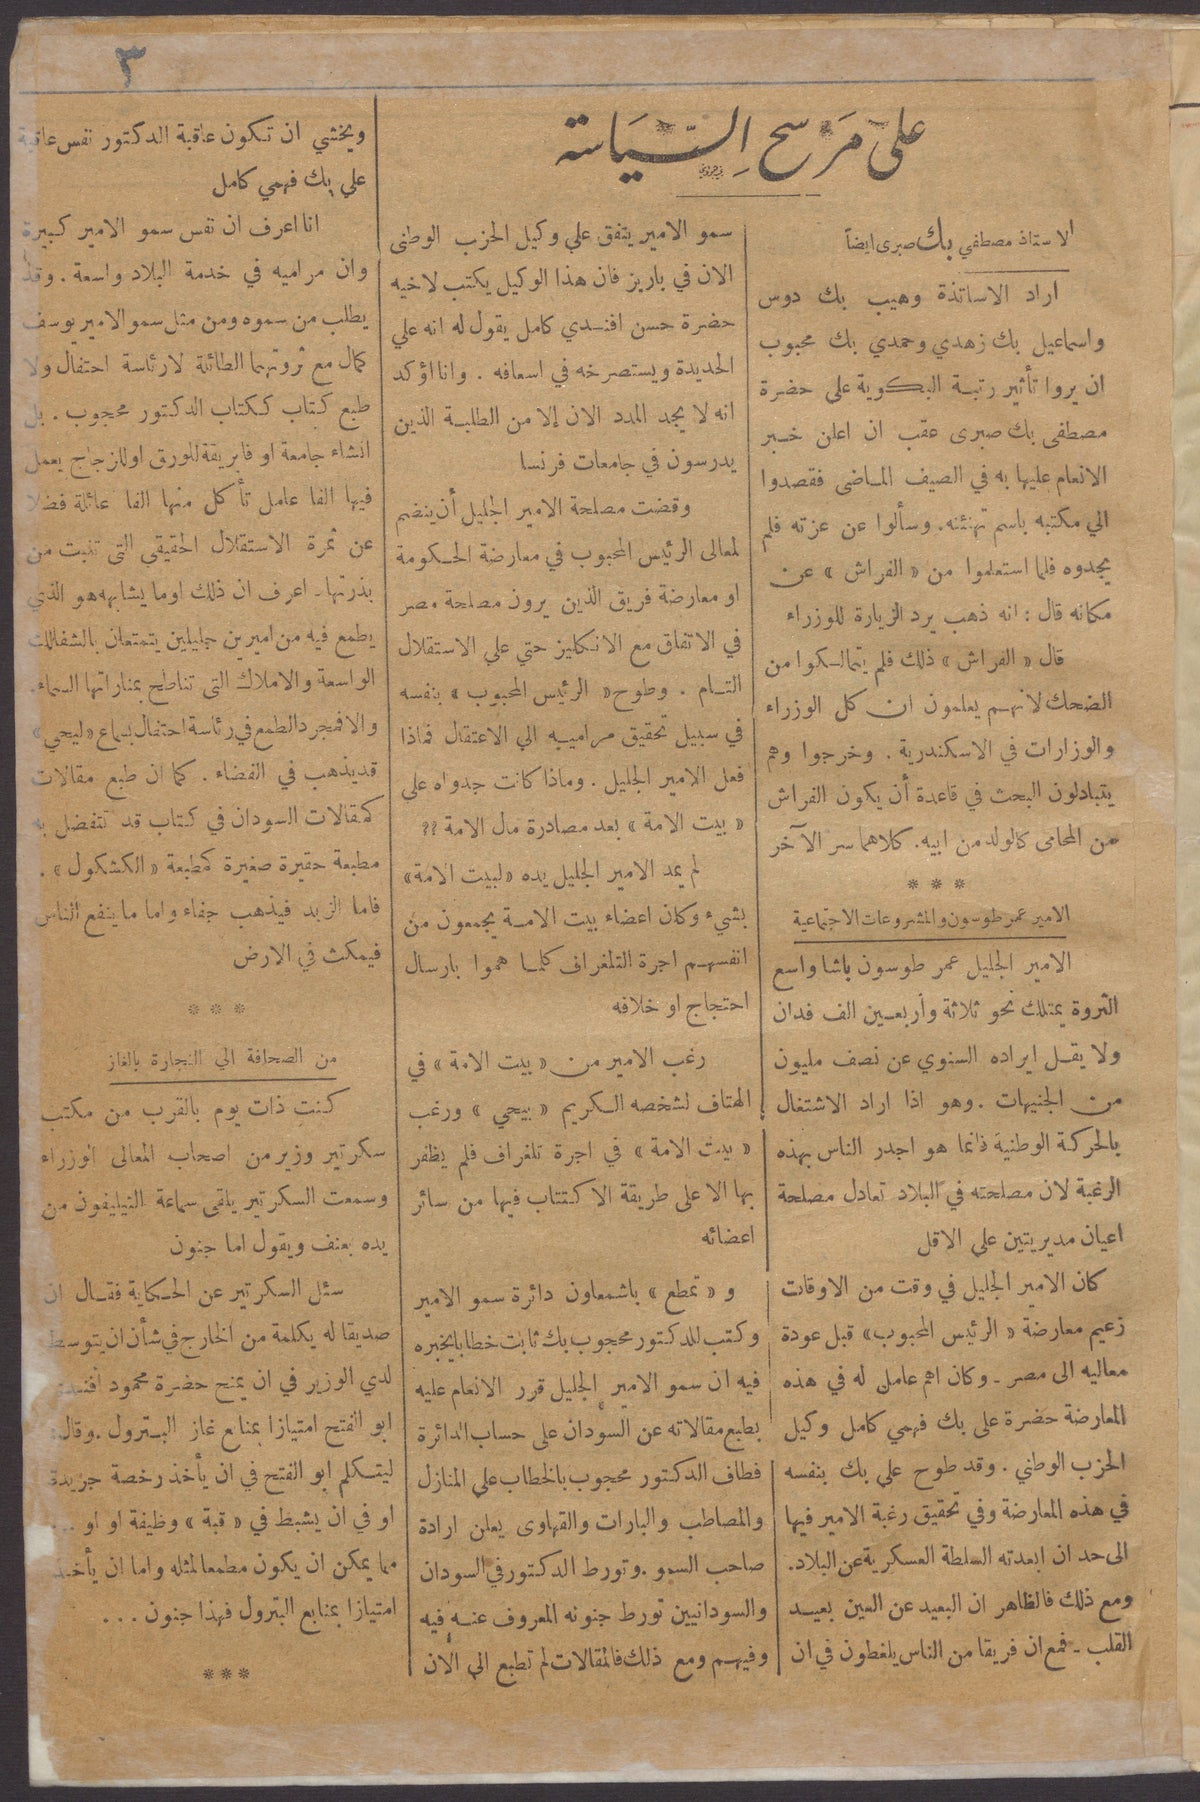 ٣
على مَرسح السّياسة
الاستاذ مصطفي بك صبرى ايضاً
اراد الاساتذة وهيب بك دوس
واسماعيل بك زهدي وحمدي بك محبوب
ان يروا تأثير رتبة البكوية على حضرة
مصطفى بك صبرى عقب ان اعلن خبر
الانعام عليها به في الصيف الماضى فقصدوا
الي مكتبه باسم تهنئته. وسألوا عن عزته فلم
يجدوه فلما استعلموا من « الفراش » عن
مكانه قال : انه ذهب يرد الزيارة للوزراء
قال « الفراش » ذلك فلم يتمالكوا من
الضحك لانهم يعلمون ان كل الوزراء
والوزارات في الاسكندرية . وخرجوا وهم
يتبادلون البحث في قاعدة أن يكون الفراش
من المحامى كالولد من ابيه. كلاهما سر الآخر
* * *
الامير عمر طوسون والمشروعات الاجتماعية
الامير الجليل عمر طوسون باشا واسع
الثروة يمتلك نحو ثلاثة وأربعين الف فدان
ولا يقل ايراده السنوي عن نصف مليون
من الجنيهات . وهو اذا اراد الاشتغال
بالحركة الوطنية فانما هو اجدر الناس بهذه
الرغبة لان مصلحته في البلاد تعادل مصلحة
اعيان مديريتين علي الاقل
كان الامير الجليل في وقت من الاوقات
زعيم معارضة « الرئيس المحبوب» قبل عودة
معاليه الى مصر ـ وكان اهم عامل له في هذه
المعارضة حضرة على بك فهمي كامل وكيل
الحزب الوطني . وقد طوح علي بك بنفسه
في هذه المعارضة وفي تحقيق رغبة الامير فيها
الى حد ان ابعدته السلطة العسكرية عن البلاد.
ومع ذلك فالظاهر ان البعيد عن العين بعيد
القلب ـ فمع ان فريقا من الناس يلغطون في ان
سمو الامير يتفق علي وكيل الحزب الوطنى
الان في باريز فان هذا الوكيل يكتب لاخيه
حضرة حسن افندي كامل يقول له انه علي
الحديدة ويستصرخه في اسعافه . وانا اؤكد
انه لا يجد المدد الان إلا من الطلبة الذين
يدرسون في جامعات فرنسا
وقضت مصلحة الامير الجليل أن ينضم
لمعالى الرئيس المحبوب في معارضة الحكومة
او معارضة فريق الذين يرون مصلحة مصر
في الاتفاق مع الانكليز حتي علي الاستقلال
التام . وطوح « الرئيس المحبوب » بنفسه
في سبيل تحقيق مراميه الي الاعتقال فماذا
فعل الامير الجليل . وماذا كانت جدواه على
« بيت الامة » بعد مصادرة مال الامة ??
لم يمد الامير الجليل يده «لبيت الامة»
بشيء وكان اعضاء بيت الامة يجمعون من
انفسهم اجرة التلغراف كلما هموا بارسال
احتجاج او خلافه
رغب الامير من « بيت الامة » في
الهتاف لشخصه الكريم « بيحي » ورغب
« بيت الامة » في اجرة تلغراف فلم يظفر
بها الا على طريقة الاكتتاب فيها من سائر
اعضائه
و « تمطع » باشمعاون دائرة سمو الامير
وكتب للدكتور محجوب بك ثابت خطابا يخبره
فيه ان سمو الامير الجليل قرر الانعام عليه
بطبع مقالاته عن السودان على حساب الدائرة
فطاف الدكتور محجوب بالخطاب علي المنازل
والمصاطب والبارات والقهاوى يعلن ارادة
صاحب السمو . وتورط الدكتور في السودان
والسودانيين تورط جنونه المعروف عنه فيه
وفيهم ومع ذلك فالمقالات لم تطبع الي الان
ويخشي ان تكون عاقبة الدكتور نفس عاقبة
علي بك فهمي كامل
انا اعرف ان نفس سمو الامير كبيرة
وان مراميه في خدمة البلاد واسعة . وقد
يطلب من سموه ومن مثل سمو الامير يوسف
كمال مع ثروتهما الطائلة لا رئاسة احتفال ولا
طبع كتاب ككتاب الدكتور محجوب . بل
انشاء جامعة او فابريقة للورق او للزجاج يعمل
فيها الفا عامل تأكل منها الفا عائلة فضلا
عن ثمرة الاستقلال الحقيقي التى تنبت من
بذرتها. اعرف ان ذلك اوما يشابهه هو الذي
يطمع فيه من اميرين جليلين يتمتعان بالشفالك
الواسعة والاملاك التى تناطح بمناراتها السماء.
والا فمجرد الطمع في رئاسة احتفال لسماع «ليحي»
قد يذهب في الفضاء . كما ان طبع مقالات
كمقالات السودان في كتاب قد تتفضل به
مطبعة حقيرة صغيرة كمطبعة « الكشكول » .
فاما الزبد فيذهب جفاء واما ما ينفع الناس
فيمكث في الارض
* * *
من الصحافة الي التجارة بالغاز
كنت ذات يوم بالقرب من مكتب
سكرتير وزير من اصحاب المعالى الوزراء
وسمعت السكرتير يلقى سماعة التيليفون من
يده بعنف ويقول اما جنون
سئل السكرتير عن الحكاية فقال ان
صديقا له يكلمه من الخارج في شأن ان يتوسط
لدي الوزير في ان يمنح حضرة محمود افندى
ابو الفتح امتيازا بمنابع غاز البترول . وقال:
ليتكلم ابو الفتح في ان يأخذ رخصة جريدة
او في ان يشبط في « قبة » وظيفة او او ...
مما يمكن ان يكون مطمعا لمثله واما ان يأخذ
امتيازا بمنابع البترول فهذا جنون ...
***